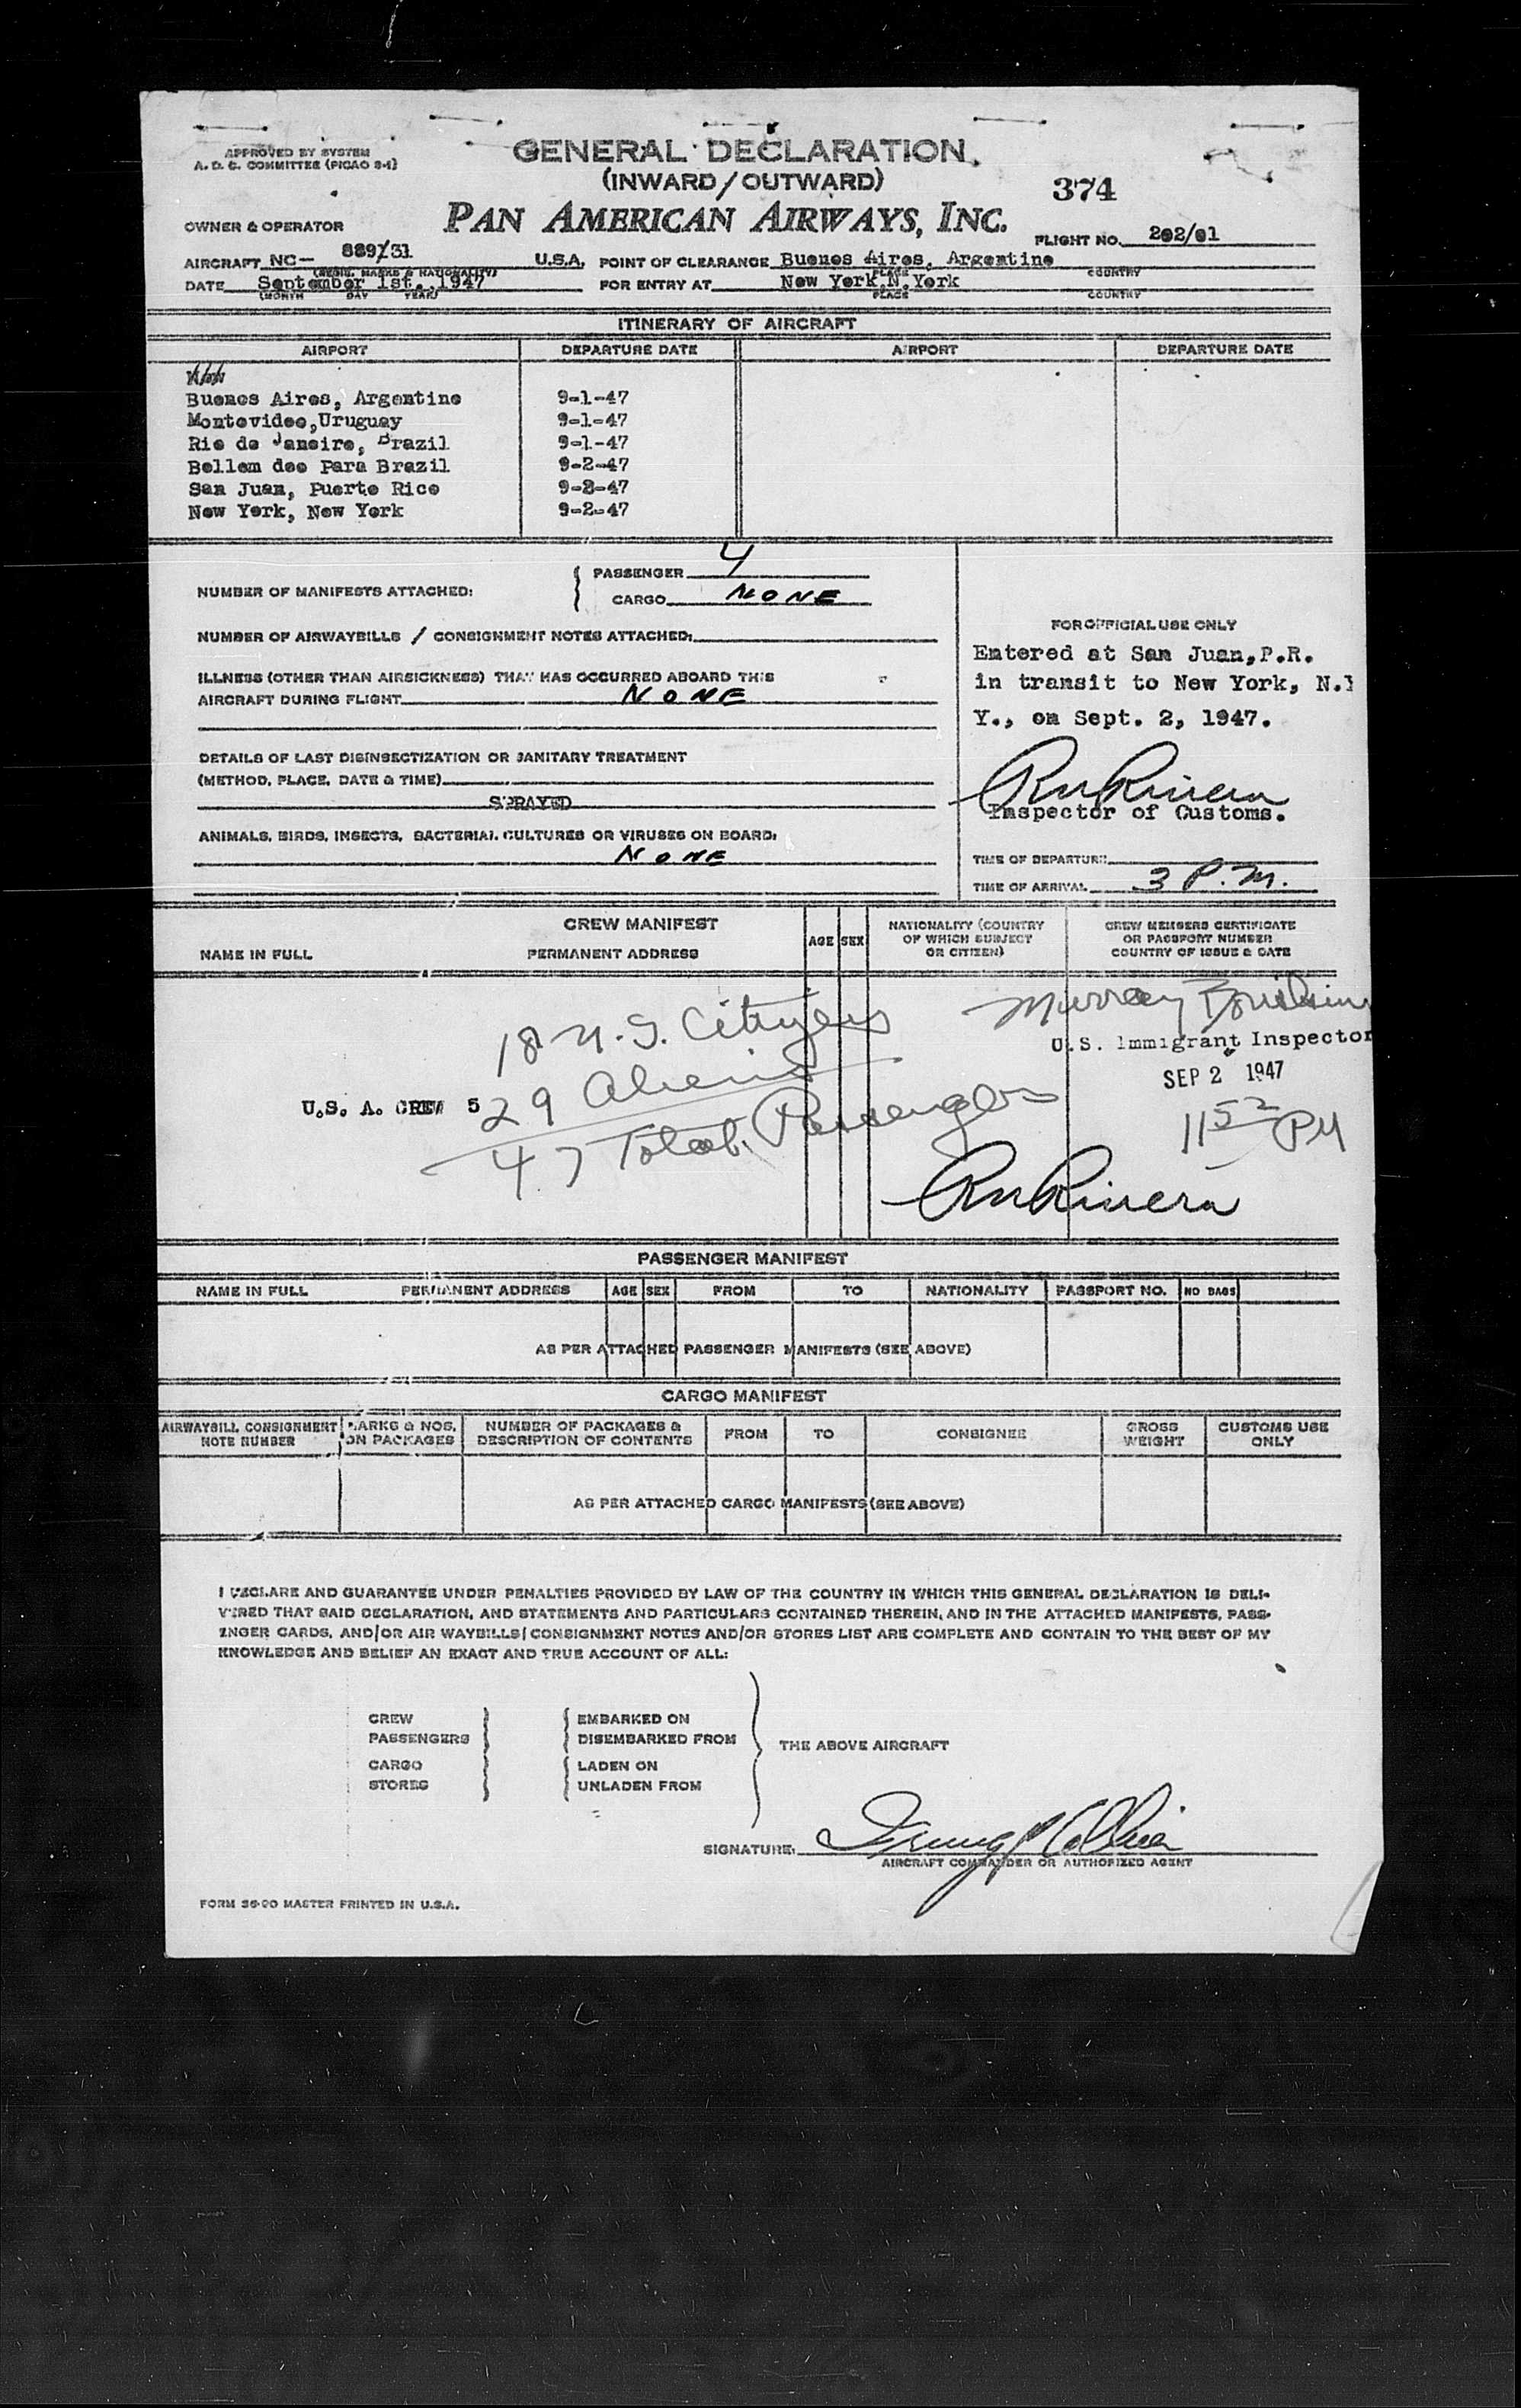 APPROVED BY SYSTEM
A. D. C. COMMITTEE (PICAO 2-1)
GENERAL DECLARATION
(INWARD/OUTWARD)
374
PAN AMERICAN AIRWAYS, INC.
OWNER & OPERATOR
FLIGHT NO. 202/01
AIRCRAFT NC- U.S.A. POINT OF CLEARANCE Buenos Aires, Argentine
(REGIS. MARKS & NATIONALITY) PLACE COUNTRY
DATE September 1st., 1947 FOR ENTRY AT New York,N.York
(MONTH DAY YEAR) PLACE COUNTRY
ITINERARY OF AIRCRAFT
AIRPORT DEPARTURE DATE AIRPORT DEPARTURE DATE
Buenos Aires, Argentine 9-1-47
Montevideo,Uruguay 9-1-47
Rio de Janeiro, Brazil 9-1-47
Bellem doo Para Brazil 9-2-47
San Juan, Puerto Rico 9-2-47
New York, New York 9-2-47
NUMBER OF MANIFESTS ATTACHED: PASSENGER 4
CARGO NONE
NUMBER OF AIRWAYBILLS / CONSIGNMENT NOTES ATTACHED:
ILLNESS (OTHER THAN AIRSICKNESS) THAT HAS OCCURRED ABOARD THIS
AIRCRAFT DURING FLIGHT NONE
DETAILS OF LAST DISINSECTIZATION OR SANITARY TREATMENT
(METHOD, PLACE, DATE & TIME)
SPRAYED
ANIMALS, BIRDS, INSECTS, BACTERIAL CULTURES OR VIRUSES ON BOARD:
NONE
FOR OFFICIAL USE ONLY
Entered at San Juan,P.R.
in transit to New York, N.Y
Y., on Sept. 2, 1947.
RnRivera
Inspector of Customs.
TIME OF DEPARTURE
TIME OF ARRIVAL 3 P.M.
CREW MANIFEST
NAME IN FULL PERMANENT ADDRESS AGE SEX NATIONALITY (COUNTRY OF WHICH SUBJECT OR CITIZEN) CREW MEMBERS CERTIFICATE OR PASSPORT NUMBER COUNTRY OF ISSUE & DATE
18 U.S. Citizens
Murray
U.S. Immigrant Inspector
SEP 2 1947
U.S. A. CREW 5
29 Aliens
47 Total Passengers
11 52 PM
RnRivera
PASSENGER MANIFEST
NAME IN FULL PERMANENT ADDRESS AGE SEX FROM TO NATIONALITY PASSPORT NO. NO BAGS
AS PER ATTACHED PASSENGER MANIFESTS (SEE ABOVE)
CARGO MANIFEST
AIRWAYBILL CONSIGNMENT NOTE NUMBER MARKS & NOS. ON PACKAGES NUMBER OF PACKAGES & DESCRIPTION OF CONTENTS FROM TO CONSIGNEE GROSS WEIGHT CUSTOMS USE ONLY
AS PER ATTACHED CARGO MANIFESTS (SEE ABOVE)
I DECLARE AND GUARANTEE UNDER PENALTIES PROVIDED BY LAW OF THE COUNTRY IN WHICH THIS GENERAL DECLARATION IS DELI-
VERED THAT SAID DECLARATION, AND STATEMENTS AND PARTICULARS CONTAINED THEREIN, AND IN THE ATTACHED MANIFESTS, PASS-
ENGER CARDS, AND/OR AIR WAYBILLS/CONSIGNMENT NOTES AND/OR STORES LIST ARE COMPLETE AND CONTAIN TO THE BEST OF MY
KNOWLEDGE AND BELIEF AN EXACT AND TRUE ACCOUNT OF ALL:
CREW EMBARKED ON
PASSENGERS DISEMBARKED FROM
THE ABOVE AIRCRAFT
CARGO LADEN ON
STORES UNLADEN FROM
SIGNATURE:
AIRCRAFT COMMANDER OR AUTHORIZED AGENT
FORM 36-00 MASTER PRINTED IN U.S.A.